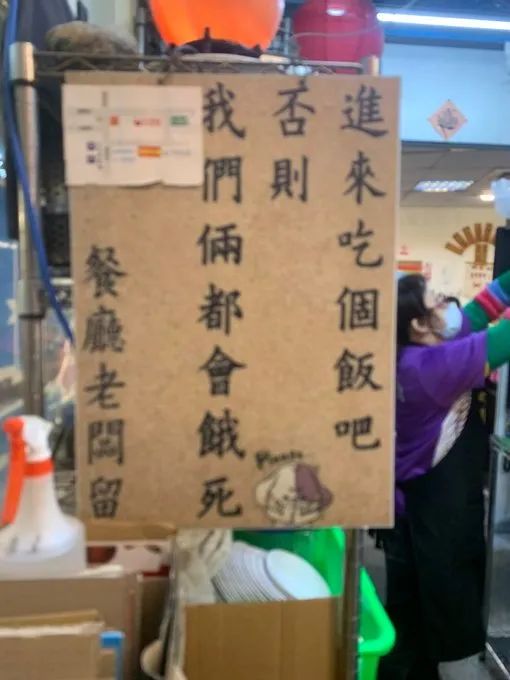 進來吃個飯吧
否則
我們倆都會餓死
餐廳老闆留